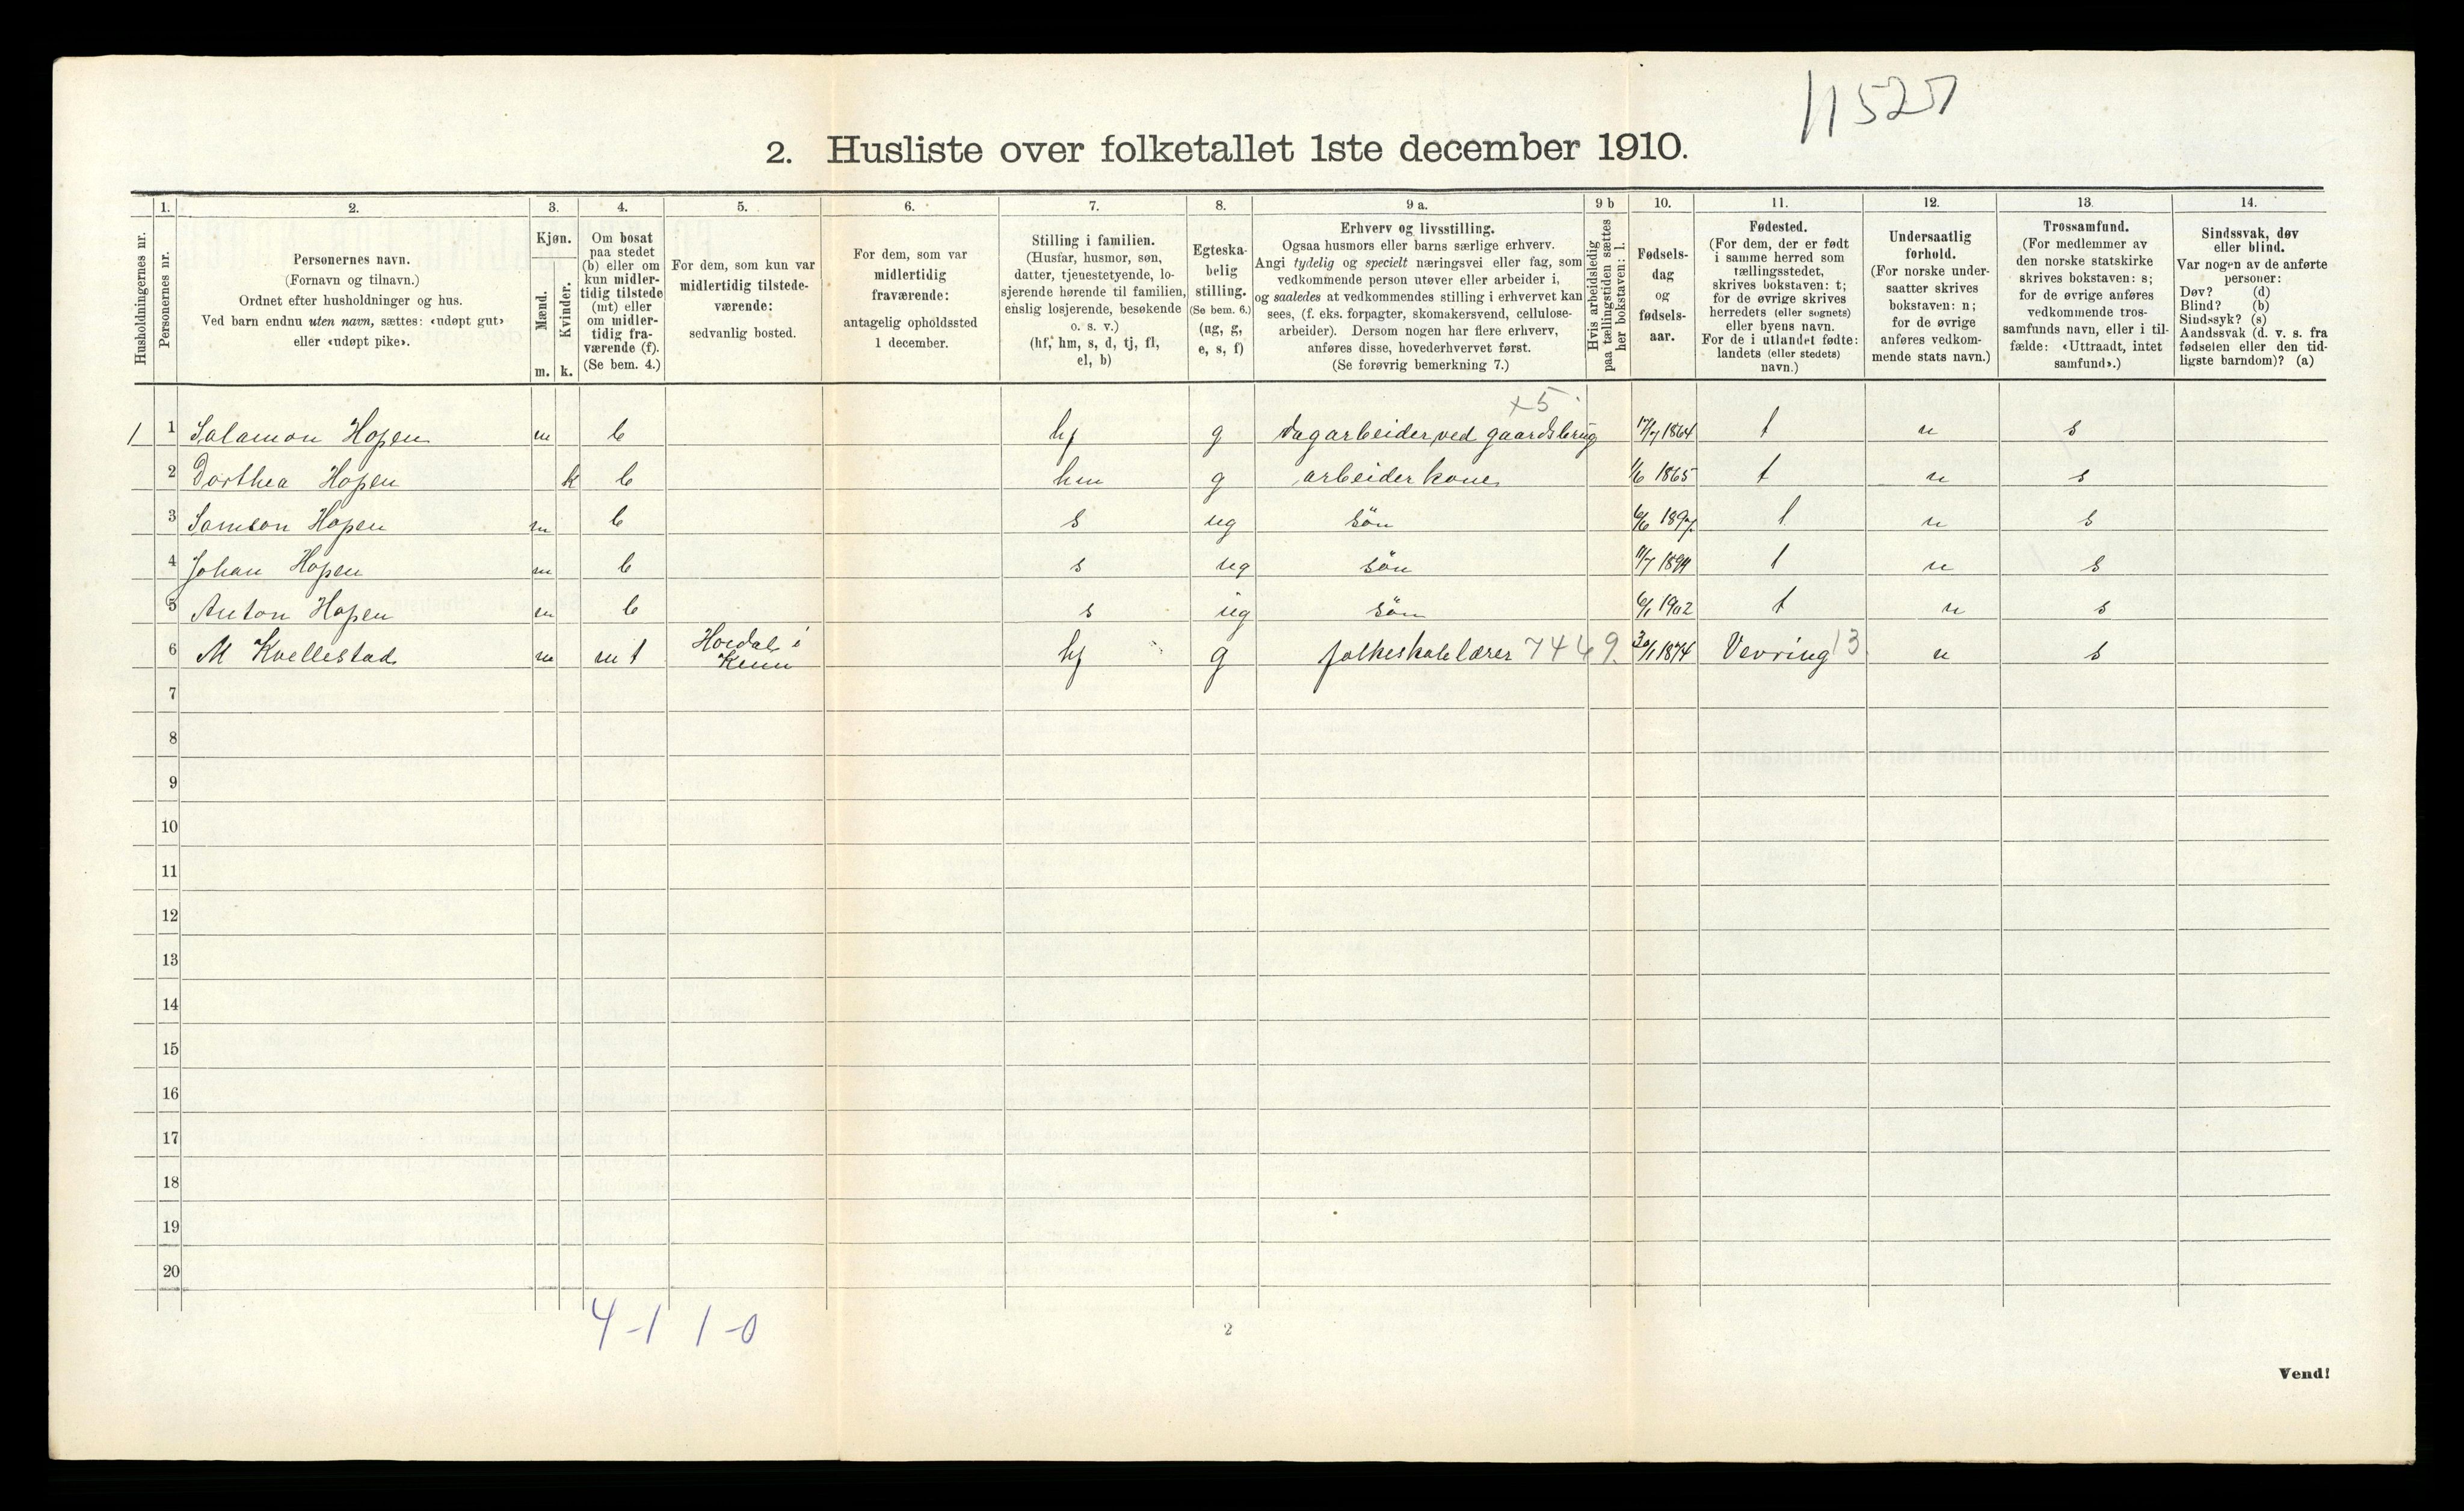 11527
2. Husliste over folketallet 1ste december 1910.
Husholdningernes nr.
1.
Personernes nr.
2.
Personernes navn.
(Fornavn og tilnavn.)
Ordnet efter husholdninger og hus.
Ved barn endnu uten navn, sættes: «udøpt gut»
eller «udøpt pike».
3.
Kjøn.
Mænd.
Kvinder.
m. k.
4.
Om bosat
paa stedet
(b) eller om
kun midler-
tidig tilstede
(mt) eller
om midler-
tidig fra-
værende (f).
(Se bem. 4.)
5.
For dem, som kun var
midlertidig tilstede-
værende:
sedvanlig bosted.
6.
For dem, som var
midlertidig
fraværende:
antagelig opholdssted
1 december.
7.
Stilling i familien.
(Husfar, husmor, søn,
datter, tjenestetyende, lo-
sjerende hørende til familien,
enslig losjerende, besøkende
o. s. v.)
(hf, hm, s, d, tj, fl,
el, b)
8.
Egteska-
belig
stilling.
(Se bem. 6.)
(ug, g,
e, s, f)
9 a.
Erhverv og livsstilling.
Ogsaa husmors eller barns særlige erhverv.
Angi tydelig og specielt næringsvei eller fag, som
vedkommende person utøver eller arbeider i,
og saaledes at vedkommendes stilling i erhvervet kan
sees, (f. eks. forpagter, skomakersvend, cellulose-
arbeider). Dersom nogen har flere erhverv,
anføres disse, hovederhvervet først.
(Se forøvrig bemerkning 7.)
9 b
Hvis arbeidsledig
paa tællingstiden sættes
her bokstaven: l.
10.
Fødsels-
dag
og
fødsels-
aar.
11.
Fødested.
(For dem, der er født
i samme herred som
tællingsstedet,
skrives bokstaven: t;
for de øvrige skrives
herredets (eller sognets)
eller byens navn.
For de i utlandet fødte:
landets (eller stedets)
navn.)
12.
Undersaatlig
forhold.
(For norske under-
saatter skrives
bokstaven: n;
for de øvrige
anføres vedkom-
mende stats navn.)
13.
Trossamfund.
(For medlemmer av
den norske statskirke
skrives bokstaven: s;
for de øvrige anføres
vedkommende tros-
samfunds navn, eller i til-
fælde: «Uttraadt, intet
samfund».)
14.
Sindssvak, døv
eller blind.
Var nogen av de anførte
personer:
Døv? (d)
Blind? (b)
Sindssyk? (s)
Aandssvak (d. v. s. fra
fødselen eller den tid-
ligste barndom)? (a)
x 5
1 1 Salamon Hopen m b hf g dagarbeider ved gaardsbrug 17/7 1864 t n s
2 Dorthea Hopen k b hm g arbeiderkone 1/6 1865 t n s
3 Samson Hopen m b s ug søn 6/6 1897 t n s
4 Johan Hopen m b s ug søn 11/7 1899 t n s
5 Anton Hopen m b s ug søn 6/1 1902 t n s
6 M Kvellestad m mt Hovdal i Kinn hf g folkeskolelærer 7469. 30/1 1874 Vevring 13 n s
7
8
9
10
11
12
13
14
15
16
17
18
19
20
4-1 1-0
2
Vend!